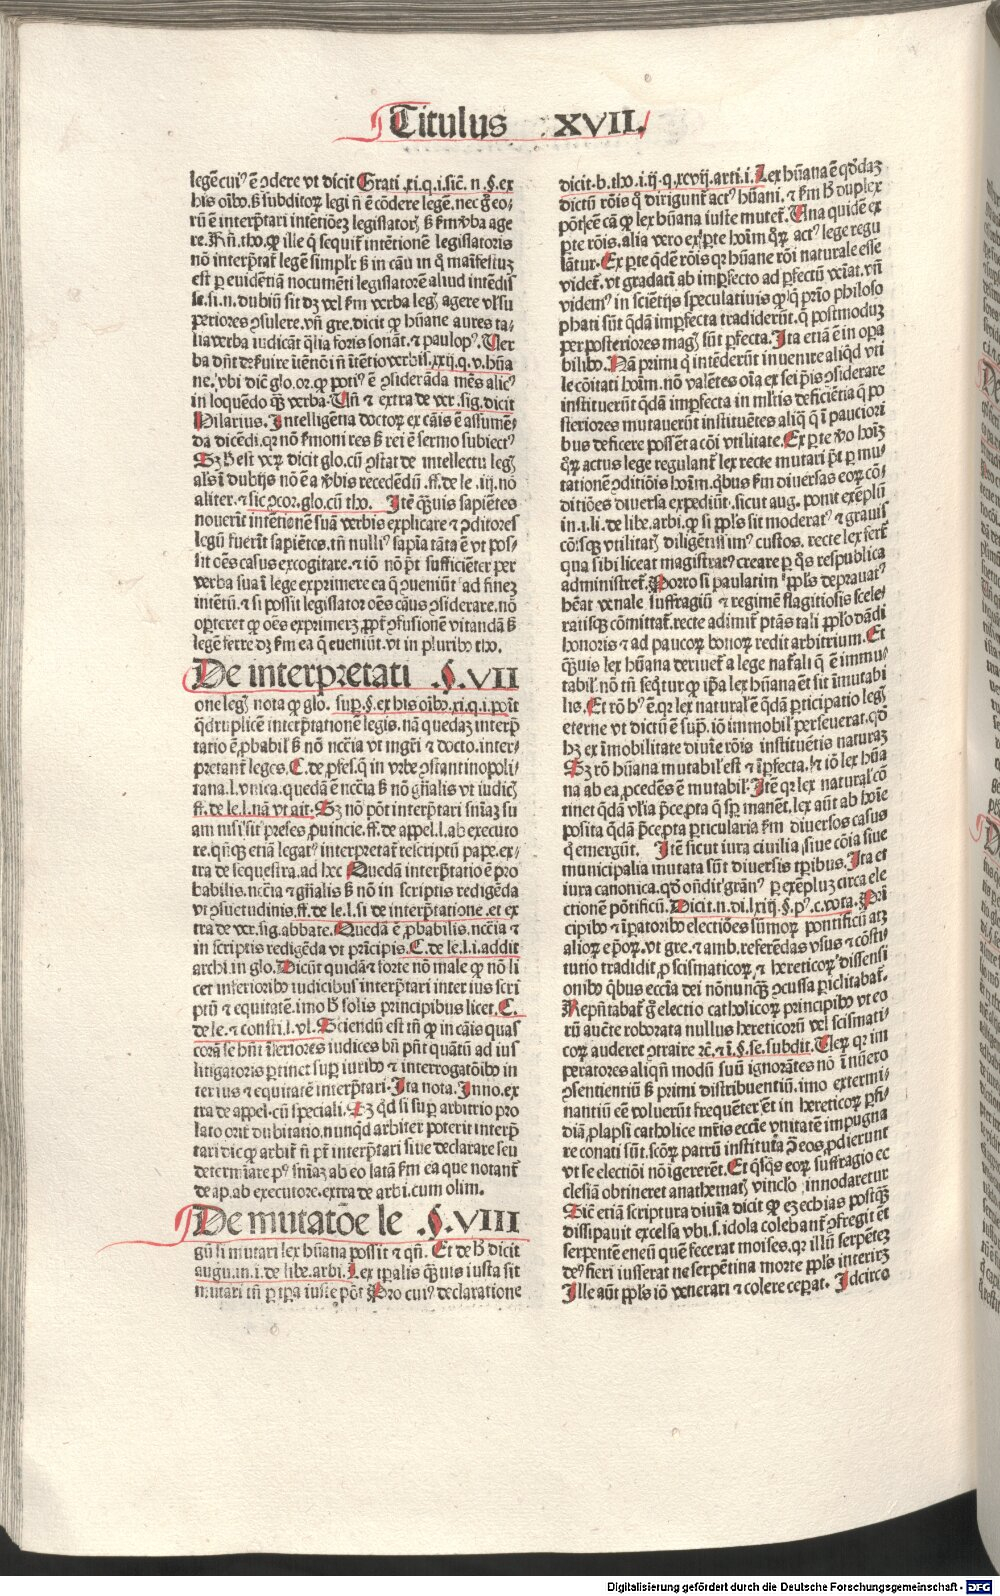 Titulus XVII.
legē cui⁹ ē ꝯdere vt dicit Grati .xi.q.i.sic̄. n. §. ex
his oībꝰ. sꝫ subditoꝝ legi n̄ ē cōdere legē. nec g̊ eo-
rū ē interp̄tari intētiōeꝫ legislatorꝭ sꝫ km̄ v̄ba age
re. Rn̄. tho. ꝙ ille q̄ sequit̄ intētionē legislatoris
nō interp̄tat̄ legē simplr̄ sꝫ in cāu in q̊ maīfestuꝫ
est ꝑ euidētiā nocumēti legislatorē aliud intēdis
se. si. n. dubiū sit dꝫ vel km̄ verba legꝭ agere vl̓ su
periores ꝯsulere. vn̄ gre. dicit ꝙ hūane aures ta-
lia verba iudicāt q̄lia foris sonāt. ⁊ paulop⁹. Uer
ba dn̄t deꝩuire ītētiōi n̄ ītētio verbis. xxij.q.v. hūa
ne. vbi dic̄ glo. or. ꝙ poti⁹ ē ꝯsiderāda mēs alic⁹
in loquēdo q̄ꝫ verba. Un̄ ⁊ extra de ver. sig. dicit
Hilarius. Intelligētia doctoꝝ ex cāis ē assumē-
da dicēdi. qꝛ nō ꝩmoni res sꝫ rei ē sermo subiect⁹
Sꝫ h̄ est veꝝ dicit glo. cū ꝯstat de intellectu legꝭ
al̓s ī dubijs nō ē a v̄bis recedēdū .ff. de le. iij. nō
aliter. ⁊ sic ꝯcor. glo. cū tho. Itē q̄ꝫuis sapiētes
nouerīt intētionē suā verbis explicare ⁊ ꝯditores
legū fuerīt sapiētes. tn̄ nulli⁹ sapīa tāta ē vt pos-
sit oēs casus excogitare. ⁊ iō nō p̄t sufficiēter per
verba sua ī lege exprimere ea q̄ ꝯueniūt ad fineꝫ
intētū. ⁊ si possit legislator oēs cāus ꝯsiderare. nō
oꝑteret ꝙ oēs exprimerꝫ ꝓpt̄ ꝯfusionē vitandā sꝫ
legē ferre dꝫ km̄ ea q̄ eueniūt. vt in pluribꝰ tho.
De interpretati .§.VII
one legꝭ nota ꝙ glo. suꝑ. §. ex his oībꝰ. xi.q.i. poīt
q̄druplicē interp̄tationē legis. nā quedaꝫ interp̄
tatio ē ꝓbabil̓ sꝫ nō nc̄cīa vt mgr̄i ⁊ docto. inter-
pretant̄ leges. C. de ꝓfes. q̄ in vrbe ꝯstantinopoli-
tana. l. vnica. quedā ē nc̄cīa sꝫ nō gn̄alis vt iudicꝭ
ff. de le. l. nā vt ait. Sꝫ nō pōt interp̄tari sn̄iaꝫ su
am nisi sit preses ꝓuincie. ff. de appel. l. ab executo
re. qn̄qꝫ etiā legat⁹ interpretat̄ rescriptū pape. ex-
tra de sequestra. ad hec Quedā interp̄tatio ē pro
babilis. nc̄cīa ⁊ gn̄alis sꝫ nō in scriptis redigēda
vt ꝯsuetudinis. ff. de le. l. si de interp̄tatione. et ex
tra de ver. sig. abbate. Queda ē ꝓbabilis. nc̄cīa ⁊
in scriptis redigēda vt prīcipis. C. de le. l. i. addit
archi. in glo. Dicūt quidā ⁊ forte nō male ꝙ nō li
cet inferioribꝰ iudicibus interp̄tari inter ius scri
ptū ⁊ equitatē. imo h̄ solis principibus licet. C.
de le. ⁊ consti. l. vl. Sciendū est tn̄ ꝙ in cāis quas
corā se hn̄t īferiores iudices bn̄ pn̄t quātū ad ius
litigatoris ꝑtinet suꝑ iuribꝰ ⁊ interrogatōibꝰ in
ter ius ⁊ equitatē interp̄tari. Ita nota. Inno. ex
tra de appel. cū speciali. Sꝫ qd̓ si suꝑ arbitrio pro
lato orit̄ dubitatio. nunqd̓ arbiter poterit interp̄
tari dic ꝙ arbit̄ n̄ pt̄ interp̄tari siue declarare seu
determīare p⁹ sn̄iaꝫ ab eo latā km̄ ea que notant̄
de ap. ab executore. extra de arbi. cum olim.
De mutatōe le .§.VIII
gū si mutari lex hūana possit ⁊ qn̄. Et de h̄ dicit
augu. in. i. de libe. arbi. Lex tꝑalis q̄ꝫuis iusta sit
mutari tn̄ ꝑ tꝑa iuste pōt Pro cui⁹ declaratione
dicit. b. tho. i. ij. q. xcvij. arti. i. Lex hūana ē qd̓daꝫ
dictū rōis q̊ dirigunt̄ act⁹ hūani. ⁊ km̄ h̄ duplex
pōt ēē cā ꝙ lex hūana iuste mutet̄. Una quidē ex
ꝑte rōis. alia vero ex ꝑte hoīm q̄ꝝ act⁹ lege regu
lātur. Ex ꝑte qdē rōis qꝛ hūane rōi naturale esse
videt̄. vt gradatī ab imꝑfecto ad ꝑfectū veīat. vn̄
videm⁹ in sciētijs speculatiuis ꝙ q̄ prīo philoso
phati sūt qd̄ā imꝑfecta tradiderūt. q̄ postmoduꝫ
per posteriores magꝭ sūt ꝑfecta. Ita etiā ē in oꝑa
bilibꝰ. Nā primi q̄ intēderūt inuenire aliqd̓ vti
le cōitati hoīm. nō valētes oīa ex sei p̄is ꝯsiderare
instituerūt qd̄ā imꝑfecta in ml̓tis deficiētia q̄ po
steriores mutauerūt instituētes aliq̄ q̄ ī paucior̄i
bus deficere possēt a cōi vtilitate. Ex ꝑte v̄o hoīꝫ
q̄ꝝ actus lege regulant̄ lex recte mutari p̄t ꝑ mu-
tationē ꝯditiōis hoīm. qbus km̄ diuersas eoꝝ cō-
ditiōes diuersa expediūt. sicut aug. ponit exēplū
in. i. li. de libe. arbi. ꝙ si ppl̓s sit moderat⁹ ⁊ grauis
cōīsqꝫ vtilitatꝭ diligētissim⁹ custos. recte lex fert̄
qua sibi liceat magistrat⁹ creare ꝑ q̄s respublica
administret̄. Porro si paulatim ppl̓s deprauat⁹
hēat venale suffragiū ⁊ regimē flagitiosis scele-
ratisqꝫ cōmittat̄. recte adimit̄ ptās tali ppl̓o dādi
honoris ⁊ ad paucoꝝ bonoꝝ redit arbitrium. Et
q̄ꝫuis lex hūana deriuet̄ a lege nat̄ali q̄ ē immu-
tabil̓. nō tn̄ seq̄tur ꝙ ip̄a lex hūana ēt sit īmutabi
lis. Et rō h⁹ ē. qꝛ lex naturał ē qd̄ā ꝑticipatio legꝭ
eterne vt dictū ē suꝑ. iō immobil̓ perseuerat. qd̓
hꝫ ex īmobilitate diuīe rōis instituētis naturaꝫ
Sꝫ rō hūana mutabil̓ est ⁊ īꝑfecta. ⁊ iō lex hūa
na ab ea ꝓcedēs ē mutabil̓. Itē qꝛ lex natural̓ cō
tinet qd̄ā vl̓ia p̄cepta q̄ sꝑ manēt. lex aūt ab hoīe
posita qd̄ā p̄cepta ꝑticularia km̄ diuersos casus
q̄ emergūt. Itē sicut iura ciuilia siue cōia siue
municipalia mutata sūt diuersis tꝑibus. Ita et
iura canonica. qd̓ on̄dit gran⁹ ꝑ exēpluꝫ circa ele
ctionē pōtificū. Dicit. n. di. lxiij. §. p⁹. c. vota. Pri
cipibꝰ ⁊ īꝑatoribꝰ electiōes sūmoꝝ pontificū atꝫ
alioꝝ ep̄oꝝ. vt gre. ⁊ amb. referēdas vsus ⁊ cōsti-
tutio tradidit ꝓ scismaticoꝝ ⁊ hereticoꝝ dissensi
onibꝰ qbus ecc̄ia dei nōnunqꝫ ꝯcussa ꝑiclitabat̄.
Rep̄n̄tabat̄ g̊ electio catholicoꝝ principibꝰ vt eo
rū auc̄te roborata nullus hereticorū vel scismati-
coꝝ auderet ꝯtraire ꝛc̄. ⁊ ī. §. se. subdit. Ueꝝ qꝛ im
peratores aliqn̄ modū suū ignorātes nō ī nūero
ꝯsentientiū sꝫ primi distribuentiū. imo extermi-
nantiū eē voluerūt frequēter ēt in hereticoꝝ ꝑfi-
diā ꝓlapsi catholice mr̄is ecc̄ie vnitatē impugna
re conati sūt. sc̄oꝝ patrū instituta ꝯ̄ eos ꝓdierunt
vt se electiōi nō īgererēt. Et qsqs eoꝝ suffragio ec
clesiā obtineret anathematꝭ vinclo innodaretur
Sic̄ etiā scriptura diuīa dicit ꝙ ezechias postq̄ꝫ
dissipauit excelsa vbi. s. idola colebant̄ ꝯfregit et
serpentē eneū quē fecerat moises. qꝛ illū serpēteꝫ
de⁹ fieri iusserat ne serpētina morte ppl̓s interirꝫ
Ille aūt ppl̓s iō venerari ⁊ colere ceꝑat. Idcirco
Digitalisierung gefördert durch die Deutsche Forschungsgemeinschaft - DFG